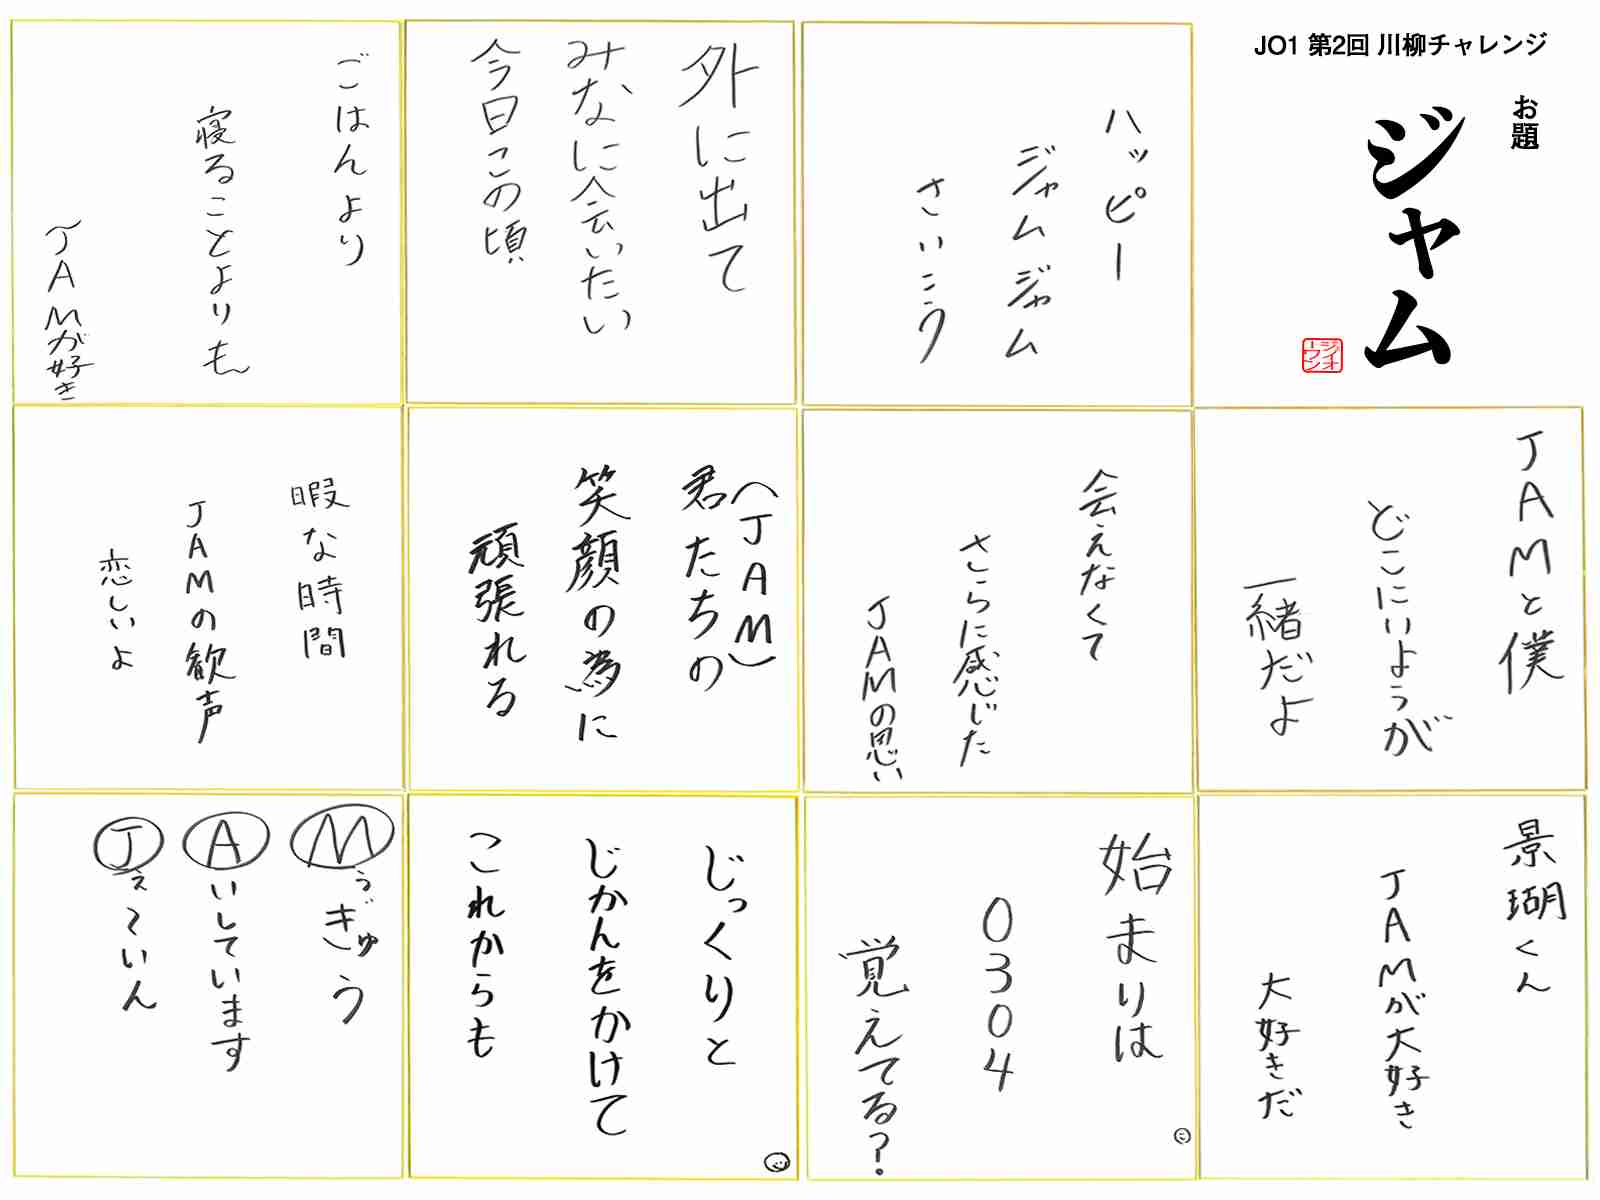 JO1 第2回 川柳チャレンジ
お題
ジャム
ジェイオーワン
ハッピー
ジャムジャム
さいこう
外に出て
みなに会いたい
今日この頃
ごはんより
寝ることよりも
JAMが好き
JAMと僕
どこにいようが
一緒だよ
会えなくて
さらに感じた
JAMの思い
(JAM)
君たちの
笑顔の為に
頑張れる
暇な時間
JAMの歓声
恋しいよ
景瑚くん
JAMが大好き
大好きだ
始まりは
0304
覚えてる?
じっくりと
じかんをかけて
これからも
Mぅぎゅう
Aいしています
Jぇ〜いん